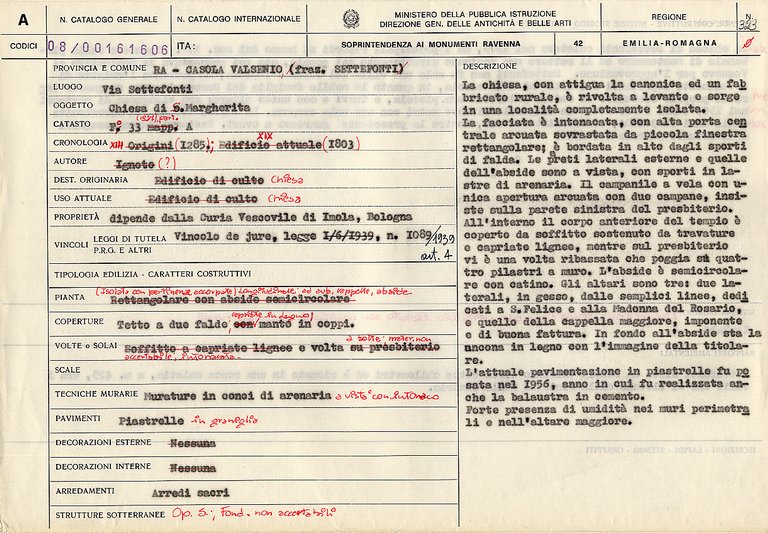 A
N. CATALOGO GENERALE
N. CATALOGO INTERNAZIONALE
MINISTERO DELLA PUBBLICA ISTRUZIONE
DIREZIONE GEN. DELLE ANTICHITÀ E BELLE ARTI
REGIONE
N.
323
CODICI
08/00161606
ITA:
SOPRINTENDENZA AI MONUMENTI RAVENNA
42
EMILIA-ROMAGNA
PROVINCIA E COMUNE RA - CASOLA VALSENIO (fraz. SETTEFONTI)
LUOGO Via Settefonti
OGGETTO Chiesa di S.Margherita
CATASTO F° 33 mapp. A
CRONOLOGIA XIII Origini (1285); Edificio attuale (1803) XIX
AUTORE Ignoto (?)
DEST. ORIGINARIA Edificio di culto Chiesa
USO ATTUALE Edificio di culto Chiesa
PROPRIETÀ dipende dalla Curia Vescovile di Imola, Bologna
VINCOLI LEGGI DI TUTELA Vincolo de jure, legge 1/6/1939, n. 1089/1939
P.R.G. E ALTRI art. 4
TIPOLOGIA EDILIZIA - CARATTERI COSTRUTTIVI
PIANTA Rettangolare con abside semicircolare
COPERTURE Tetto a due falde con manto in coppi.
VOLTE o SOLAI Soffitto a capriate lignee e volta su presbiterio
SCALE
TECNICHE MURARIE Murature in conci di arenaria a vista con intonaco
PAVIMENTI Piastrelle in graniglia
DECORAZIONI ESTERNE Nessuna
DECORAZIONI INTERNE Nessuna
ARREDAMENTI Arredi sacri
STRUTTURE SOTTERRANEE Op. S.; Fond. non accertabili
DESCRIZIONE
La chiesa, con attigua la canonica ed un fab
bricato rurale, è rivolta a levante e sorge
in una località completamente isolata.
La facciata è intonacata, con alta porta cen
trale arcuata sovrastata da piccola finestra
rettangolare; è bordata in alto dagli sporti
di falda. Le pareti laterali esterne e quelle
dell'abside sono a vista, con sporti in la-
stre di arenaria. Il campanile a vela con u-
nica apertura arcuata con due campane, insi-
ste sulla parete sinistra del presbiterio.
All'interno il corpo anteriore del tempio è
coperto da soffitto sostenuto da travature
e capriate lignee, mentre sul presbiterio
vi è una volta ribassata che poggia su quat-
tro pilastri a muro. L'abside è semicircola-
re con catino. Gli altari sono tre: due la-
terali, in gesso, dalle semplici linee, dedi
cati a S.Felice e alla Madonna del Rosario,
e quello della cappella maggiore, imponente
e di buona fattura. In fondo all'abside sta l'a
ancona in legno con l'immagine della titola-
re.
L'attuale pavimentazione in piastrelle fu po
sata nel 1956, anno in cui fu realizzata an-
che la balaustra in cemento.
Forte presenza di umidità nei muri perimetra
li e nell'altare maggiore.